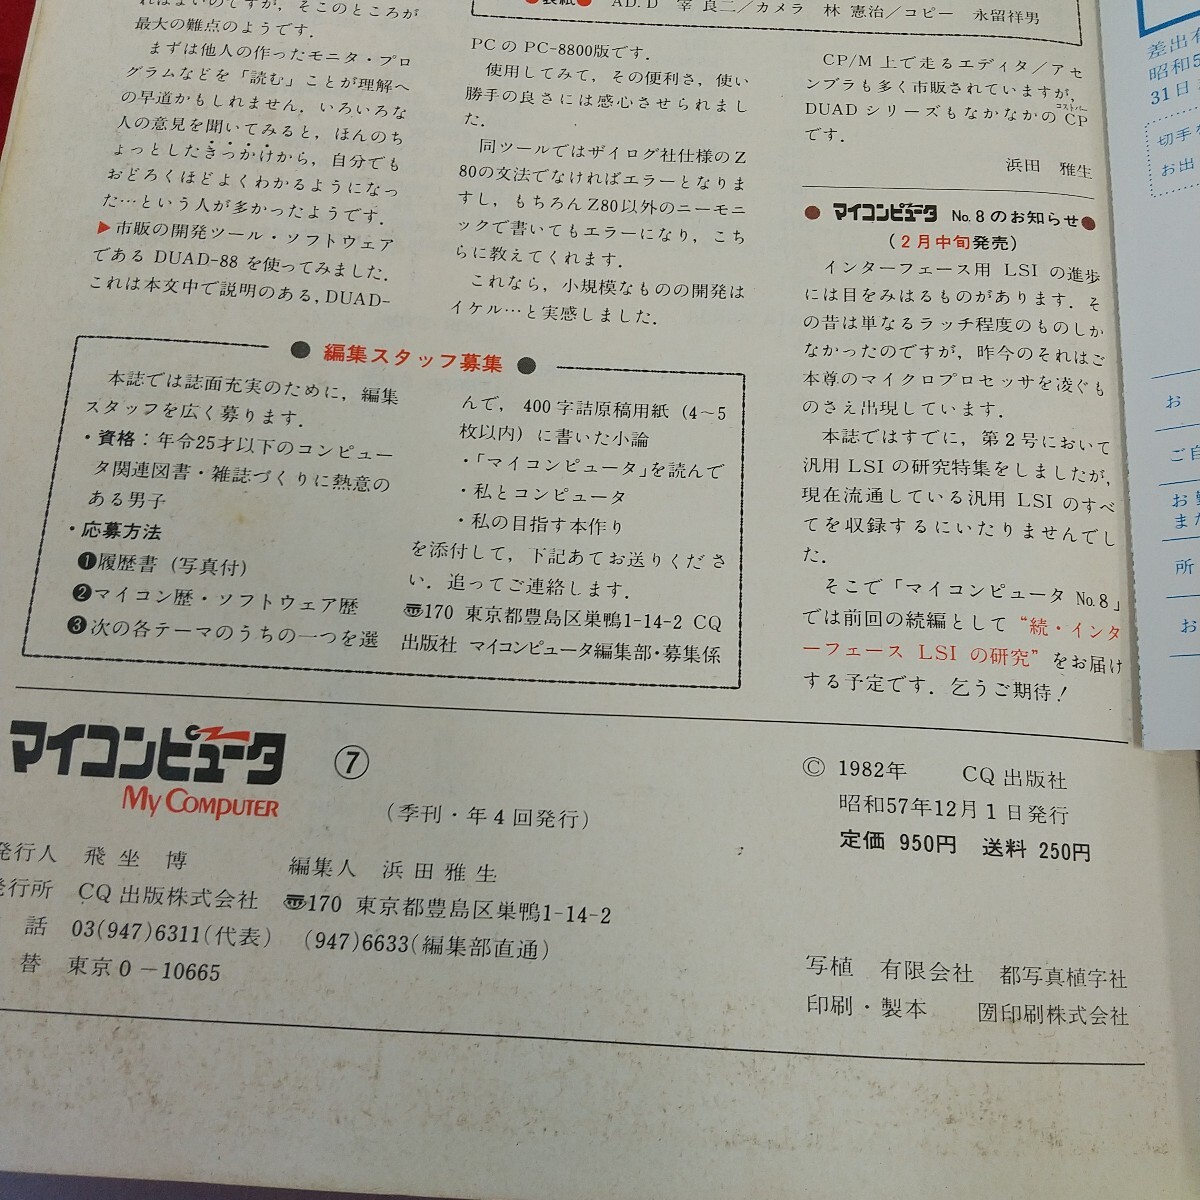 ればよいのですが，そこのところが
最大の難点のようです．
まずは他人の作ったモニタ・プロ
グラムなどを「読む」ことが理解へ
の早道かもしれません．いろいろな
人の意見を聞いてみると，ほんのち
ょっとしたきっかけから，自分でも
おどろくほどよくわかるようになっ
た…という人が多かったようです．
▶市販の開発ツール・ソフトウェア
である DUAD-88 を使ってみました．
これは本文中で説明のある，DUAD-
●表紙● AD.D 宰 良二／カメラ 林 憲治／コピー 永留祥男
PCの PC-8800版です．
使用してみて，その便利さ，使い
勝手の良さには感心させられまし
た．
同ツールではザイログ社仕様のZ
80の文法でなければエラーとなりま
すし，もちろんZ80以外のニーモニ
ックで書いてもエラーになり，こち
らに教えてくれます．
これなら，小規模なものの開発は
イケル…と実感しました．
CP/M 上で走るエディタ／アセ
ンブラも多く市販されていますが，
DUADシリーズもなかなかのCP
コストパー
です．
浜田 雅生
● マイコンピュータ No.8のお知らせ●
（2月中旬発売）
インターフェース用 LSI の進歩
には目をみはるものがあります．そ
の昔は単なるラッチ程度のものしか
なかったのですが，昨今のそれはご
本尊のマイクロプロセッサを凌ぐも
のさえ出現しています．
本誌ではすでに，第2号において
汎用LSIの研究特集をしましたが，
現在流通している汎用LSIのすべ
てを収録するにいたりませんでし
た．
そこで「マイコンピュータ No.8」
では前回の続編として “続・インタ
ーフェース LSI の研究” をお届け
する予定です．乞うご期待！
● 編集スタッフ募集 ●
本誌では誌面充実のために，編集
スタッフを広く募ります．
・資格：年令25才以下のコンピュー
タ関連図書・雑誌づくりに熱意の
ある男子
・応募方法
❶履歴書（写真付）
❷マイコン歴・ソフトウェア歴
❸次の各テーマのうちの一つを選
んで，400字詰原稿用紙（4～5
枚以内）に書いた小論
・「マイコンピュータ」を読んで
・私とコンピュータ
・私の目指す本作り
を添付して，下記あてお送りくださ
い．追ってご連絡します．
〠170 東京都豊島区巣鴨1-14-2 CQ
出版社 マイコンピュータ編集部・募集係
マイコンピュータ ⑦
My COMPUTER
（季刊・年4回発行）
© 1982年 CQ出版社
昭和57年12月1日発行
定価 950円 送料 250円
発行人 飛坐 博 編集人 浜田雅生
発行所 CQ出版株式会社 〠170 東京都豊島区巣鴨1-14-2
話 03(947)6311(代表) (947)6633(編集部直通)
替 東京0－10665
写植 有限会社 都写真植字社
印刷・製本 印刷株式会社
差出有
昭和5
31日
切手を
お出
お
ご自
お
また
所
お